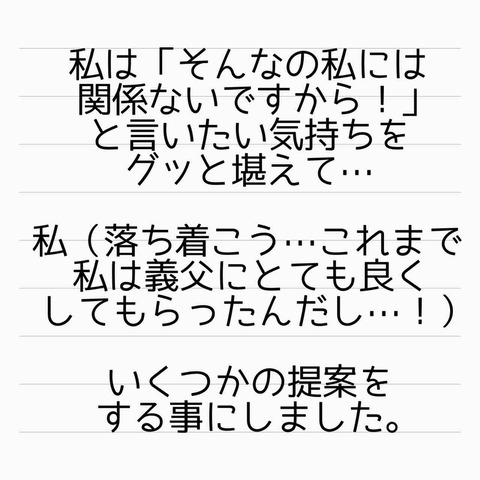 私は「そんなの私には
関係ないですから！」
と言いたい気持ちを
グッと堪えて…
私（落ち着こう…これまで
私は義父にとても良く
してもらったんだし…！）
いくつかの提案を
する事にしました。